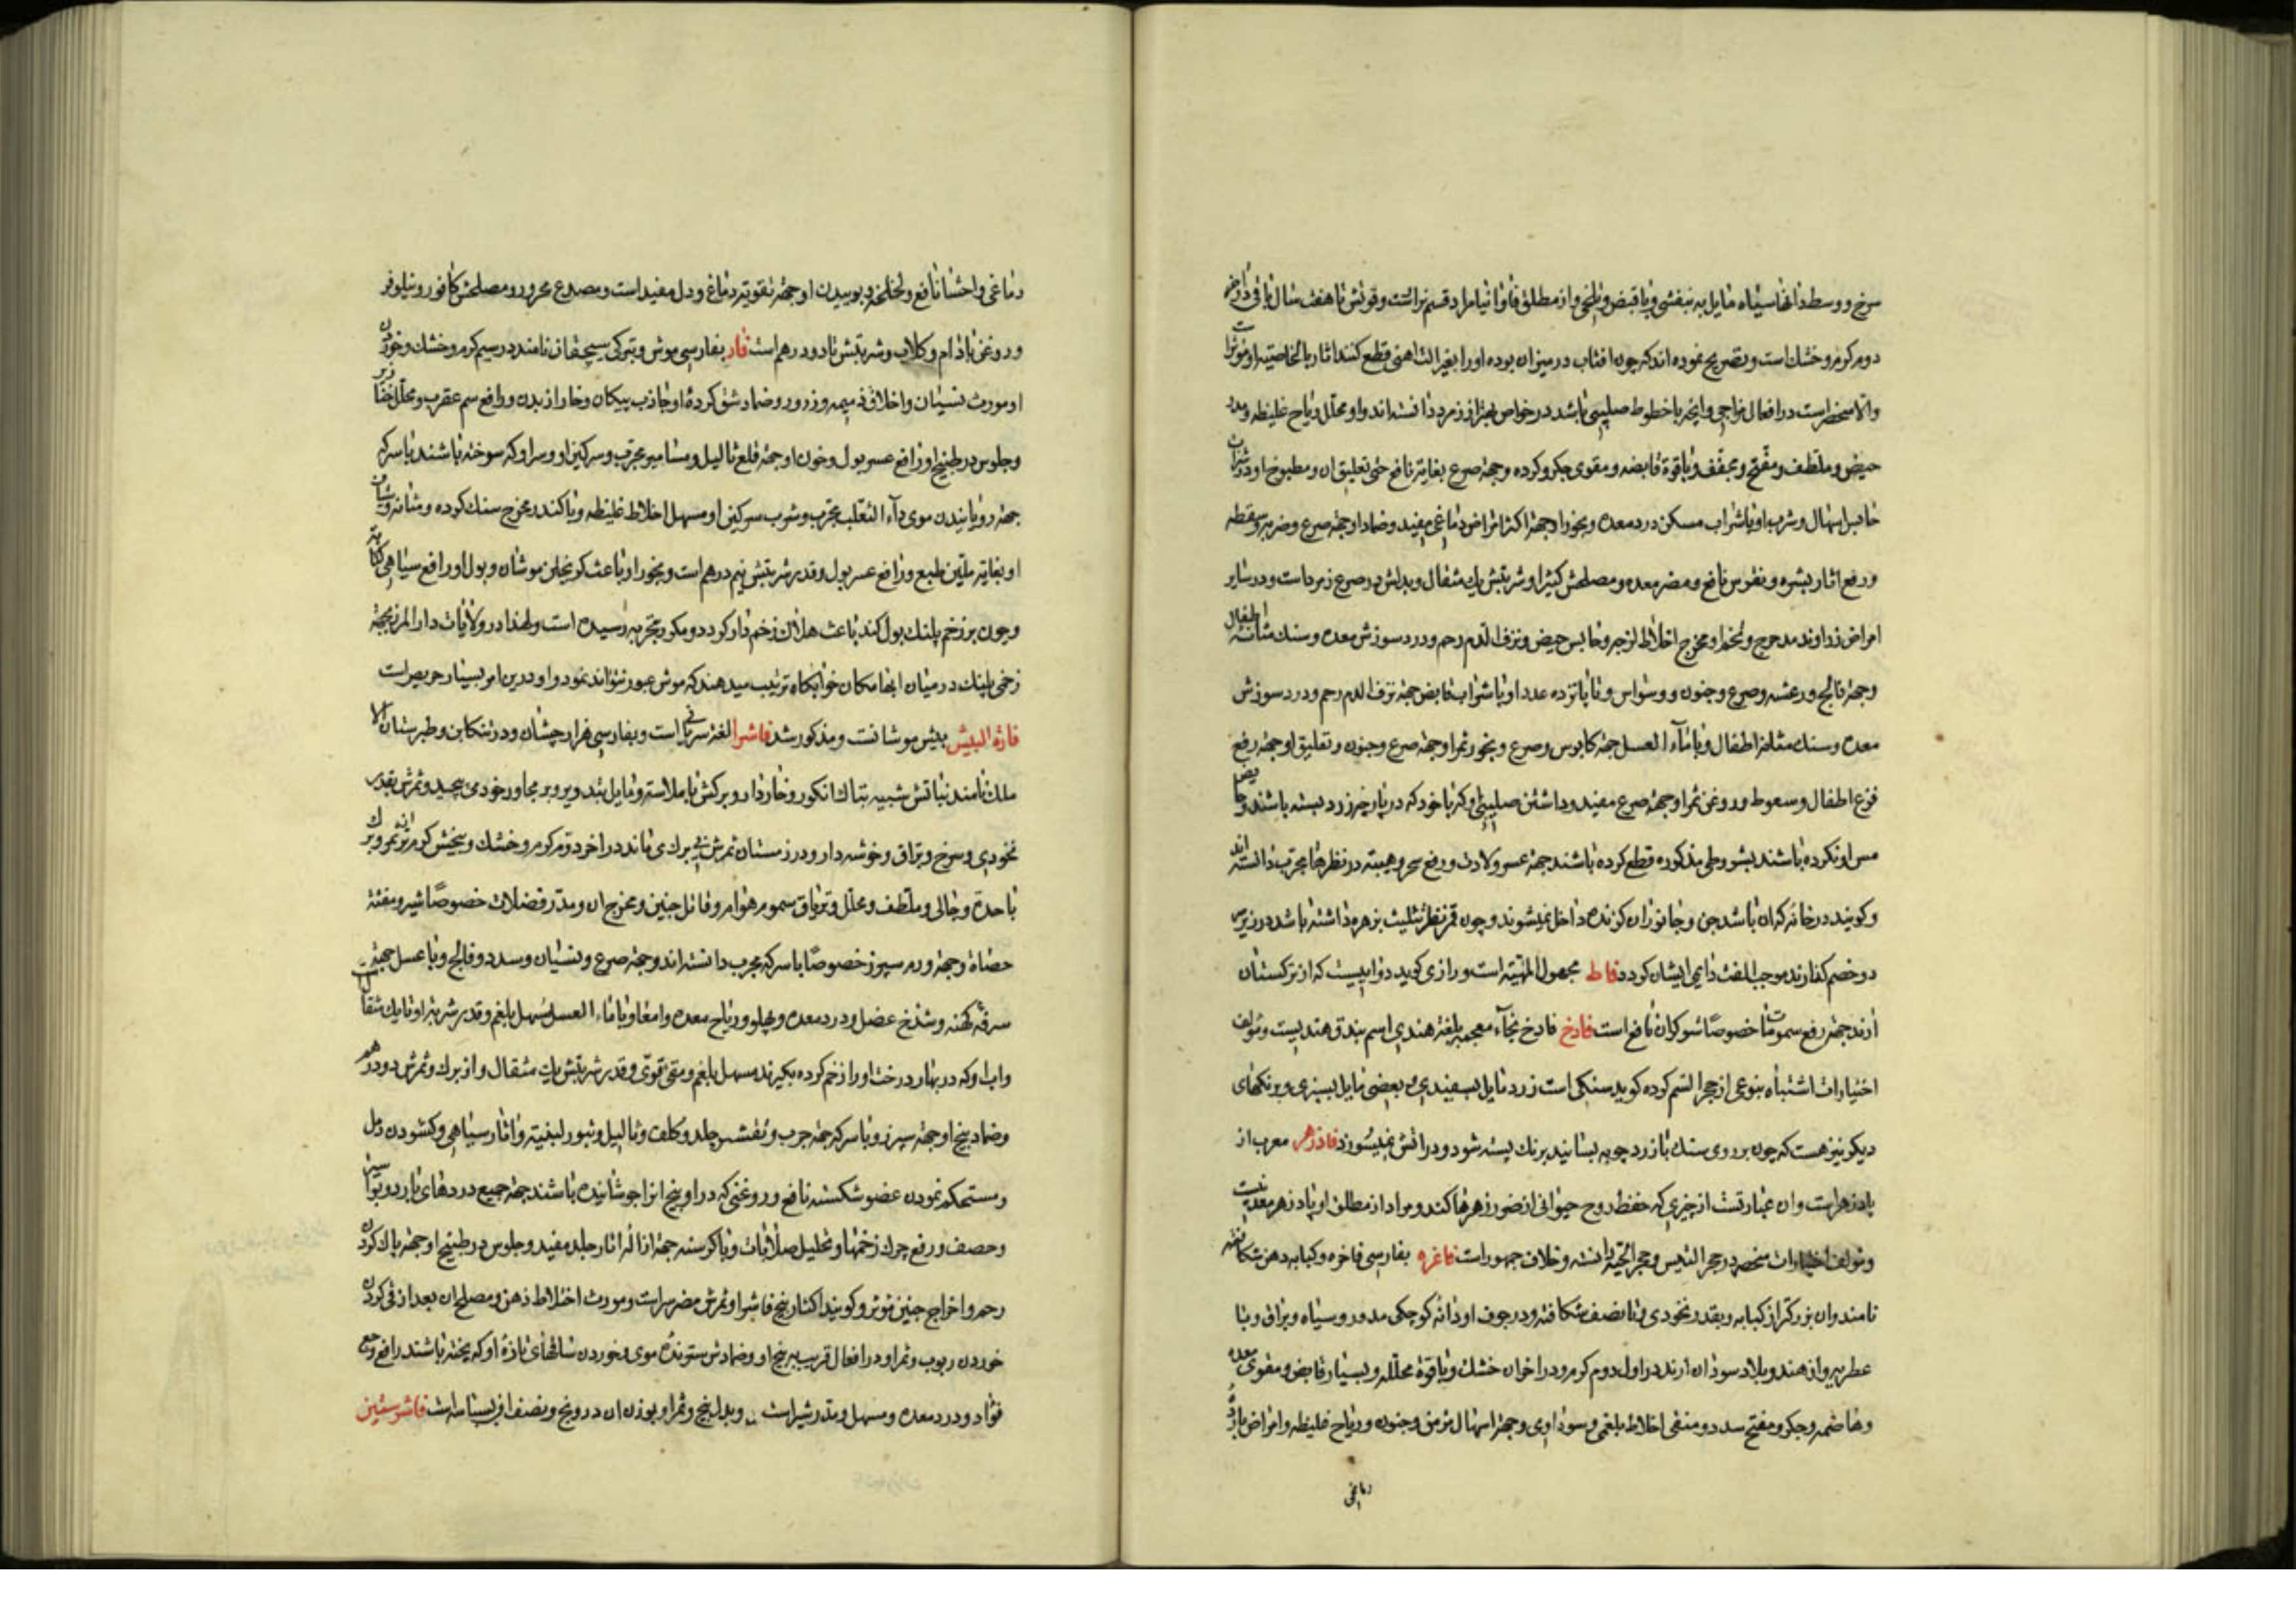 سرخ و وسط دانها سیاه مایل به بنفشی و با قبض و تلخی و از مطلق فاوانیا مراد قسم نراست و قوتش تا هفت سال باقی و در آخر
دوم گرم و خشك است و تصریح نموده اند که چون افتاب در میزان بوده او را بغیر الت اهنی قطع کنند اثار بالخاصیته او مؤثر است
والا منحصر است در افعال مزاجی و انچه با خطوط صلیبی باشد در خواص بهتر از زمرد دانسته اند و او محلل ریاح غلیظه و مدر
حیض و ملطف و مفتح و مجفف و با قوة قابضه و مقوی جگر و کرده و جهة صرع بغایة نافع حتی تعلیق ان و مطبوخ او در شراب
حابس اسهال و شرب او با شراب مسکن درد معده و بخور او جهة اکثر امراض دماغی مفید و ضماد او جهة صرع و ضربه و سقطه
و رفع اثار بشره و نقرس نافع و مضر معده و مصلحش کثیرا و شربتش یك مثقال و بدلش در صرع زمرد است و در سایر
امراض زراوند مدحرج و تخم او مخرج اخلاط لزجه و حابس حیض و نزف الدم رحم و درد سوزش معده و سنك مثانه اطفال
و جهة فالج و رعشه و صرع و جنون و وسواس و تا پانزده عدد او با شراب قابض جهة نزف الدم رحم و درد سوزش
معده و سنك مثانه اطفال و با مآء العسل جهة کابوس و صرع و بخور ثمر او جهة صرع و جنون و تعلیق او جهة رفع
فزع اطفال و سعوط روغن ثمر او جهة صرع مفید و داشتن صلیبی او که با خود که در پارچه زرد بسته باشند و حایض
مس او نکرده باشند بشروطی مذکوره قطع کرده باشند جهة عسر ولادت و رفع سحر و هیبته در نظرها مجرب دانسته اند
و کویند در خانه که ان باشد جن و جانوران کزنده داخل نمیشوند و چون قمر نظر تثلیث بزهره داشته باشد در زیر سر
دو خصم کذارند موجب الفت دایمی ایشان کردد فاط مجهول المهیته است و رازی کوید دوایست که از ترکستان
آرند جهة رفع سمومات خصوصًا شوکران نافع است فادخ فادخ بخآء معجمه بلغة هندی اسم بندق هندیست و مؤلف
اختیارات اشتباه بنوعی از حجر السم کرده کوید سنکی است زرد مایل بسفیدی و بعضی مایل بسبزی و برنکهای
دیکر نیز هست که چون بر روی سنك با زرد چوبه بسایند برنك بسته شود و در اتش نمیسوزد فادزهر معرب از
پادزهر است و ان عبارتست از چیزی که حفظ روح حیوانی از ضرر زهرها کند و مراد از مطلق او پادزهر معدنیست
و مؤلف اختیارات منحصر در حجر التیس و حجر الحیة دانسته و خلاف جمهور است فاغره بفارسی فاخره و کبابه دهن شکافته
نامند و ان بزرکتر از کبابه و بقدر نخودی و تا نصف شکافته و در جوف او دانۀ کوچکی مدور و سیاه و براق و با
عطریه و از هند و بلاد سودان ارند در اول دوم گرم و در اخر ان خشك و با قوة محلله و بسیار قابض و مقوی معده
و هاضمه و جکر و مفتح سدد و منقی اخلاط بلغمی و سوداوی و جهة اسهال مزمن و جنون و ریاح غلیظه و امراض بارده
دماغی
دماغی و احشا نافع و لخلخه و بوییدن او جهة تقویة دماغ و دل مفید است و مصدع محرور و مصلحش کافور و نیلوفر
و روغن بادام و کلاب و شربتش تا دو درهم است فار بفارسی موش و بترکی سیچقان نامند در سیم گرم و خشك و خوردن
او مورث نسیان و اخلاق ذمیمه و ذرور و ضماد شق کردۀ او جاذب پیکان و خار از بدن و رافع سم عقرب و محلل خنازیر
و جلوس در طبیخ او رافع عسر بول و خون او جهة قلع ثالیل و مسامیر مجرب و سرکین او و سر او که سوخته باشند با سرکه
جهة رویانیدن موی دآء الثعلب مجرب و شرب سرکین او مسهل اخلاط غلیظه و با کندر مخرج سنك کرده و مثانه و شیاف
او بغایة ملین طبع و رافع عسر بول و قدر شربتش نیم درهم است و بخور او باعث کریختن موشان و بول او رافع سیاهی کتابة
و چون بر زخم پلنك بول کند باعث هلاك زخم دار کردد و مکرر بتجربه رسیده است و لهذا در ولایات دار المرز بجهة
زخمی پلنك در میان ابها مکان خوابکاه ترتیب میدهند که موش عبور نتواند نمود و او در این امر بسیار حریص است
فارة البیش بیش موشانست و مذکور شد فاشرا لغة سریانی است و بفارسی هزارجشان و در تنکابن و طبرستان الا
ملك نامند نباتش شبیه بتاك انکور و خاردار و برکش با ملاسة و مایل بتدویر و بر مجاور خود می پیچد و ثمرش بقدر
نخودی و سرخ و براق و خوشه دار و در زمستان ثمرش بی برك می ماند در اخر دوم گرم و خشك و بیخش گرم تر از ثمر و برك
با حدة و جالی و ملطف و محلل و تریاق سموم هوام و قاتل جنین و مخرج ان و مدر فضلات خصوصًا شیر و مفتتة
حصاة و جهة ورم سپرز خصوصًا با سرکه مجرب دانسته اند و جهة صرع و نسیان و سدد و فالج و با عسل جهة
سرفه کهنه و شدخ عضل و درد معده و پهلو و ریاح معده و امعا و با ماء العسل مسهل بلغم و قدر شربة او تا یك مثقال
و اب او که در بهار درخت او را زخم کرده بگیرند مسهل بلغم و مقی قوی و قدر شربتش یك مثقال و از برك و ثمرش دو درهم
و ضماد بیخ او جهة سپرز و با سرکه جهة جرب و تقشر جلد و کلف و ثالیل و بثور لبنیة و اثار سیاهی و کشودن دمل
و مستحکم نمودن عضو شکسته نافع و روغنی که در او بیخ انرا جوشانیده باشند جهة جمیع دردهای بارد و بواسیر
و حصف و رفع چرك زخمها و تحلیل صلابات و با کرسنه جهة ازالۀ اثار جلد مفید و جلوس در طبیخ او جهة پاك کردن
رحم و اخراج جنین مؤثر و کویند اکثار بیخ فاشرا و ثمرش مضر سر است و مورث اختلاط ذهن و مصلح ان بعد از قی کردن
خوردن ربوب و ثمر او در افعال قریب به بیخ او و ضمادش سترندۀ موی و خوردن ساقهای تازۀ او که پخته باشند رافع وجع
فؤاد و درد معده و مسهل و مدر شیر است و بدل بیخ و ثمر او بوزن ان درونج و نصف ان بسباسه است فاشرستین